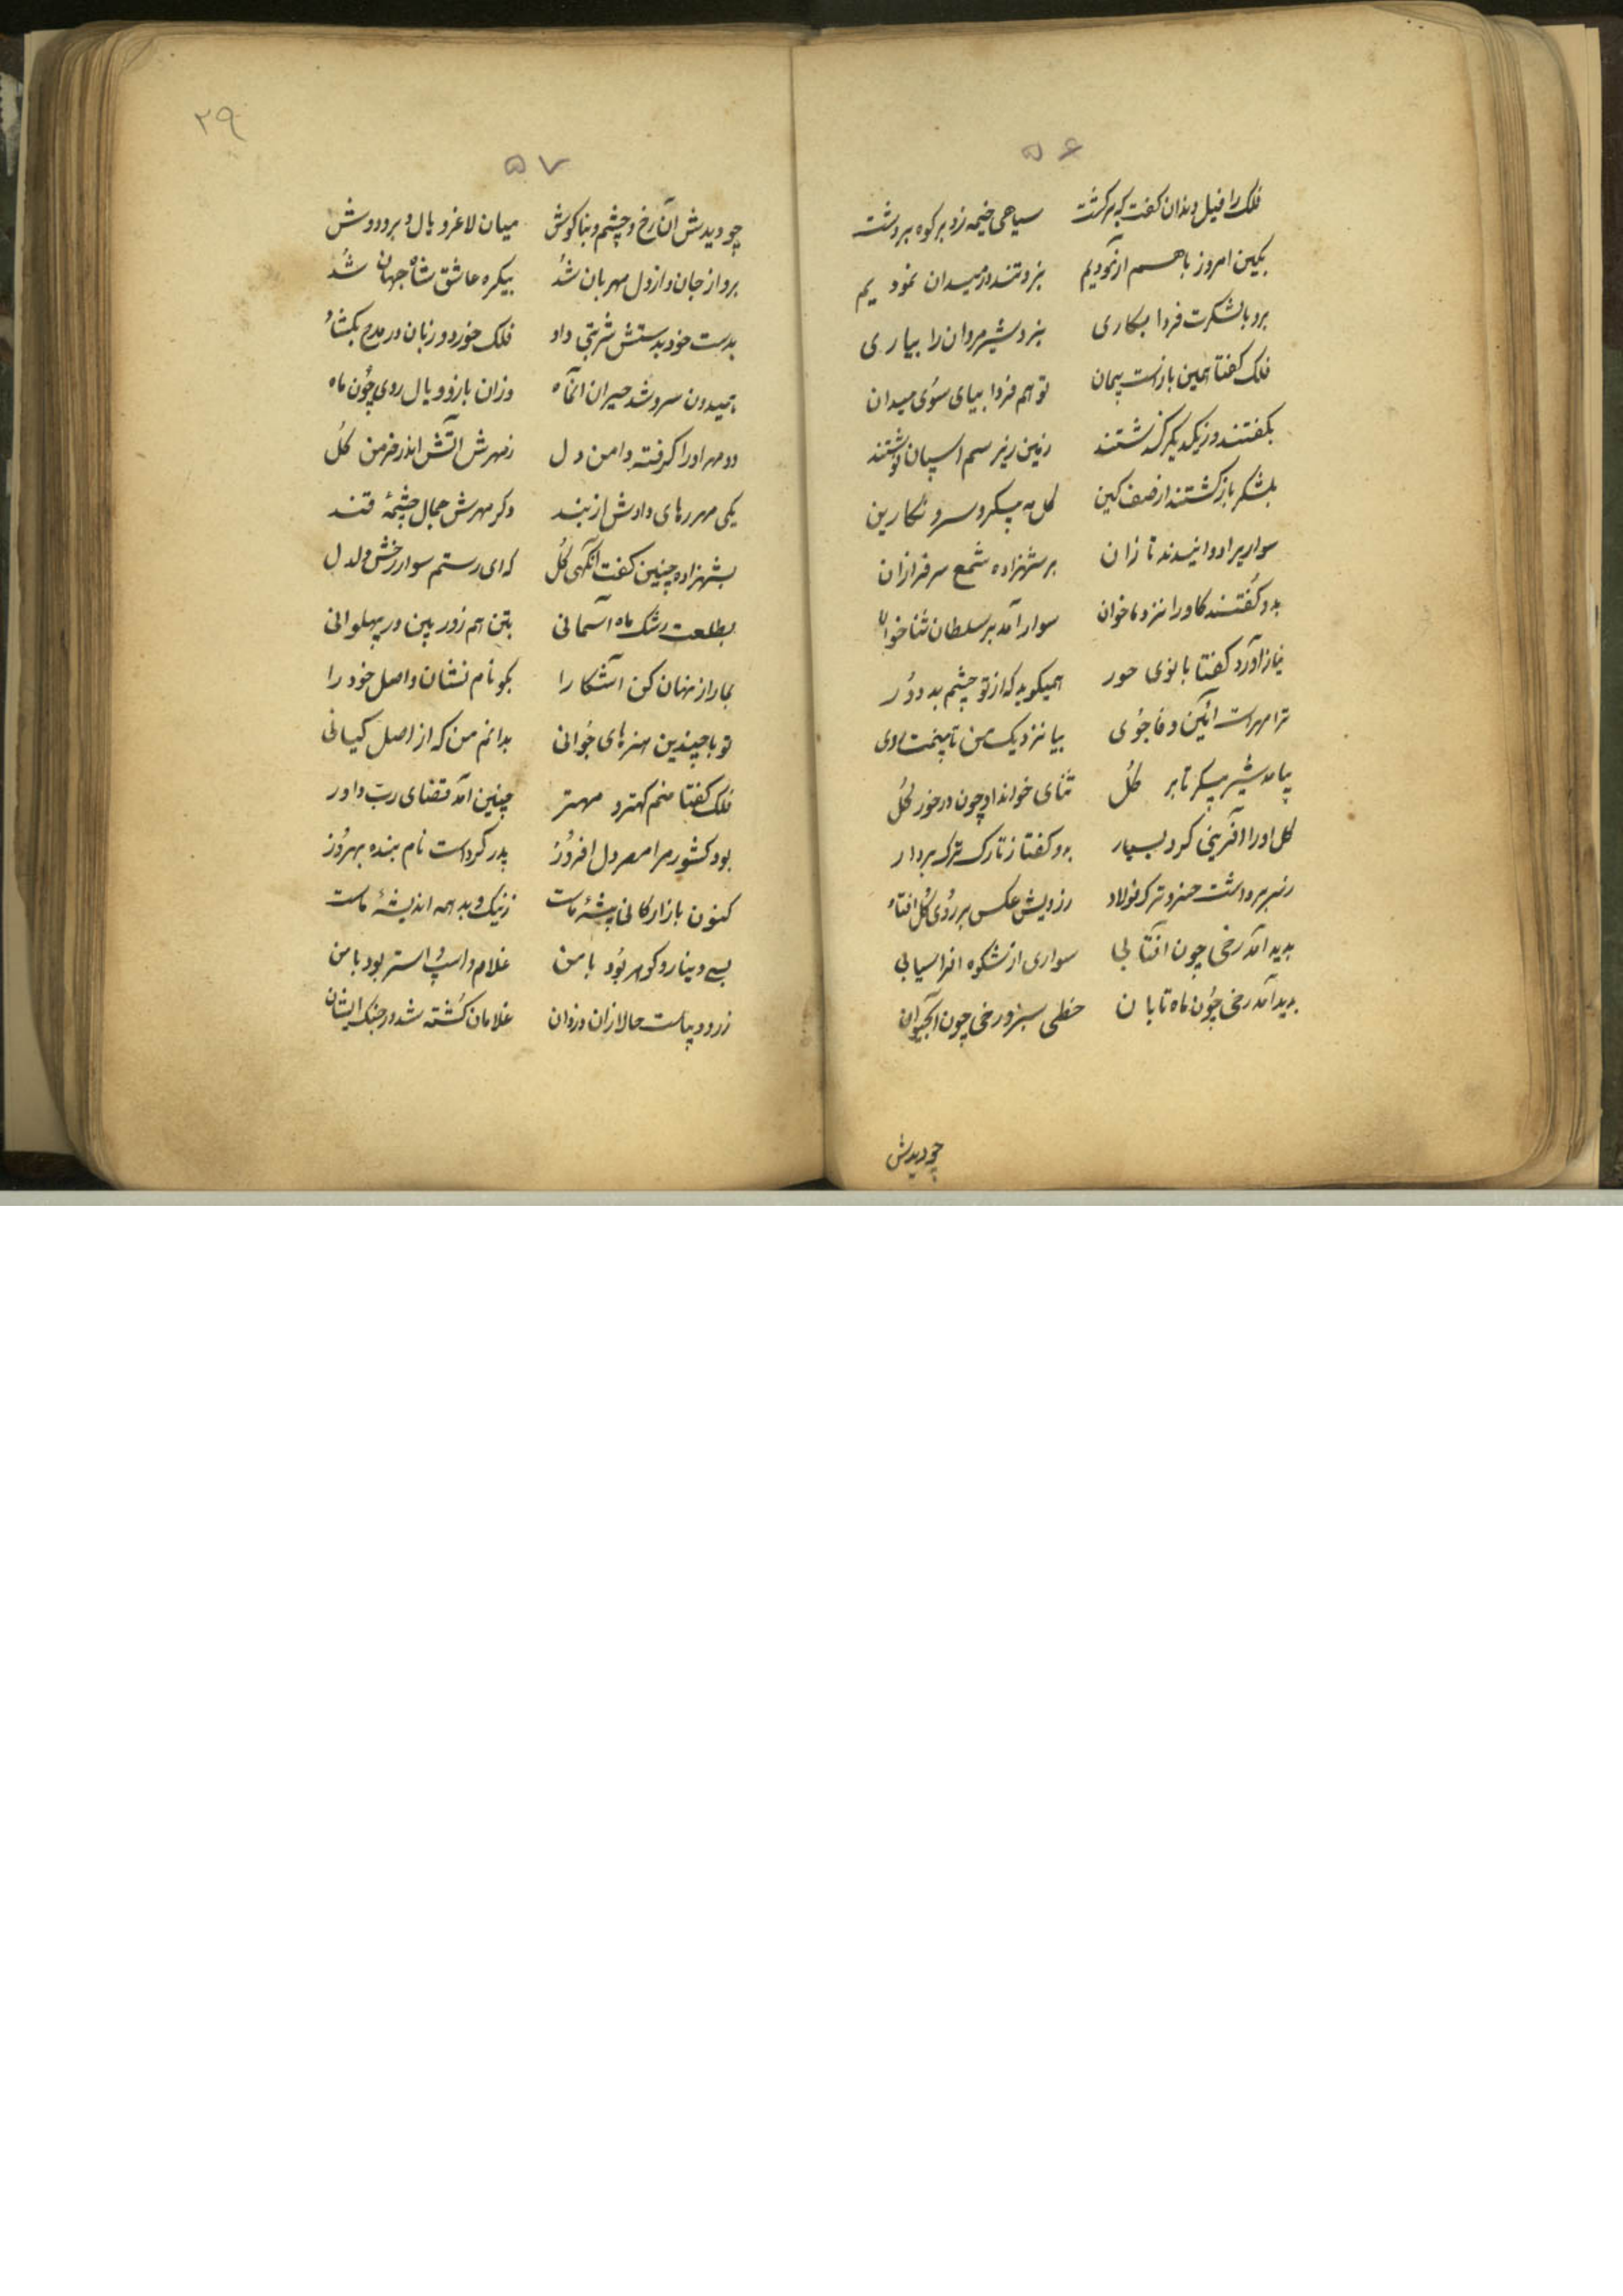 ۵۶
فلک را فیل دندان گفت برگشت سیاهی خیمه زد بر کوه بر دشت
بکین امروز باهم آزمودیم نبردتند در میدان نمودیم
برو بالشکرت فردا بکاری نبرد شیرمردان را بیاری
فلک گفتا همین بازست پیمان تو هم فردا بیای سوی میدان
بگفتند وز یکدیگر گذشتند زمین زیر سم اسپان نوشتند
بلشکر بازگشتند از صف کین گل مه پیکر و سرو نگارین
سواریرا دوانیدند تازان بر شهزاده شمع سرفرازان
بدو گفتند کاورا نزد ما خوان سوار آمد بر سلطان ثنا خوان
نیاز آورد گفتا بانوی حور همیگوید که از تو چشم بد دور
ترا مهرست آئین وفا جوی بیا نزدیک من تا بینمت روی
بیامد شیر پیکر تا بر گل ثنای خواند او چون در خور گل
گل اورا آفرینی کرد بسیار بدو گفتا ز تارک ترک بردار
ز سر برداشت خسرو ترک فولاد ز رویش عکس بر روی گل افتاد
بدید آمد رخی چون آفتابی سواری از شکوه افراسیابی
بدید آمد رخی چون ماه تابان خطی سبز و رخی چون آبحیوان
چو دیدش
۲۹
۵۷
چو دیدش آن رخ و چشم و بناکوش میان لاغر و یال و بر و دوش
برو از جان و از دل مهربان شد بیکره عاشق شاه جهان شد
بدست خود بدستش شربتی داد فلک خورد و زبان در مدح بکشاد
سرو شد حیران آنماه وزان بازو و یال روی چون ماه
دو مهر اورا گرفته دامن دل ز مهرش آتش اندر خرمن گل
یکی مهر رهای دادش از بند دگر مهرش جمال چشمهٔ قند
بشهزاده چنین گفت آنگهی گل که ای رستم سوار رخش دلدل
بطلعت رشک ماه آسمانی بتن هم زور بین در پهلوانی
بما راز نهان کن آشکارا بگو نام نشان و اصل خود را
تو با چندین هنرهای جوانی بدانم من که از اصل کیانی
فلک گفتا منم کهتر و مهتر چنین آمد قضای رب داور
بود کشور مرا مصر دل افروز پدر کردست نام بنده بهروز
کنون بازارکانی پیشهٔ ماست ز نیک و بد همه اندیشهٔ ماست
بسے دینار و کوهر بود با من غلام و اسپ و استر بود با من
زر و دیباست حالا زان دزدان غلامان کشته شد در جنک ایشان